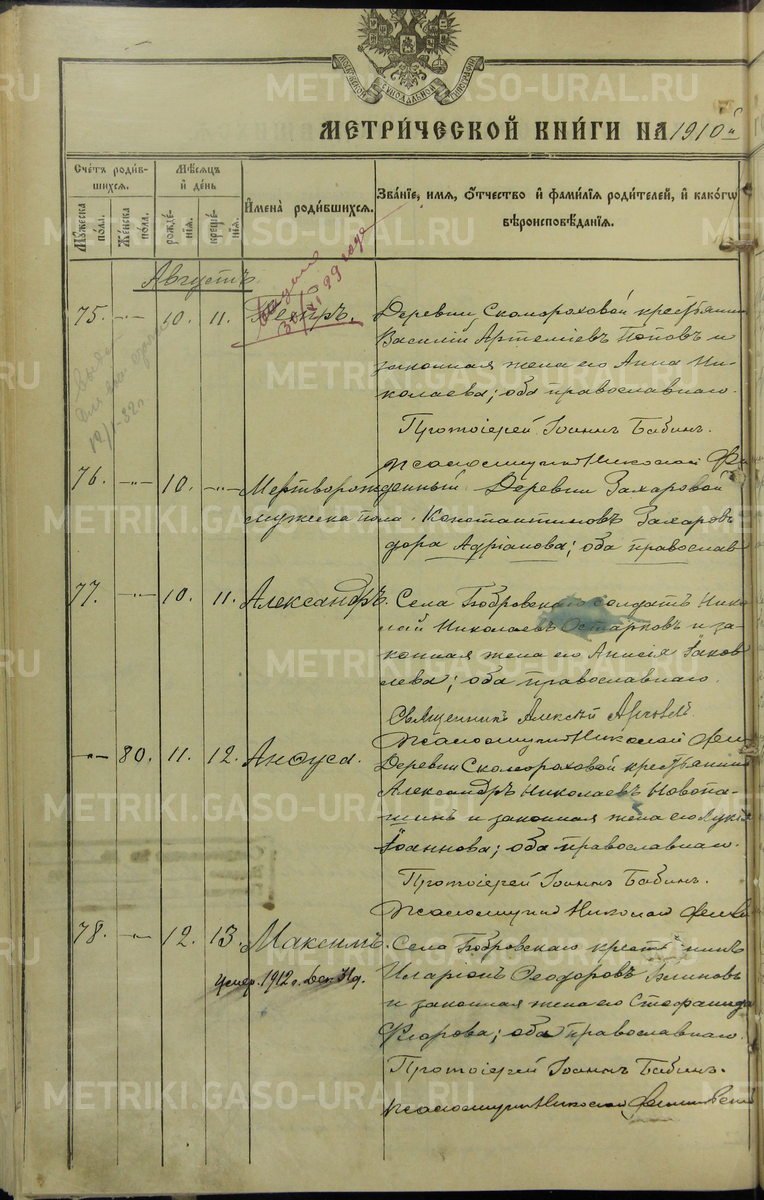 МЕТРИ́ЧЕСКОЙ КНИ́ГИ НА 1910й
Сче́тъ роди́в-
шихся.
Му́жеска по́ла.
Же́нска по́ла.
Мѣ́сяцъ
и҆ де́нь
рожде́-
нїя.
креще́-
нїя.
И҆мена̀ роди́вшихся.
Зва́нїе, и҆мя, О҆́тчество и҆ фами́лїѧ роди́телей, и҆ како́гѡ
вѣроисповѣ́данїѧ.
Августъ
75. -"- 10. 11. Петръ.
Деревни Скомороховой крестьянин
Василій Артеміевъ Поповъ и
законная жена его Анна Ни-
колаева; оба православнаго.
Протоіерей Іоаннъ Бабинъ.
Псаломщикъ Николай
76. -"- 10. -"- Мертворожденный
мужска пола.
Деревни Захаровой
Константиновъ Захаровъ
дора Адріанова; оба православ
77. -"- 10. 11. Александръ.
Села Бобровскаго солдатъ Нико
лай Николаевъ Остарковъ и за-
конная жена его Анисія Іаков
лева; оба православнаго.
Священникъ Алексій
Псаломщикъ Николай
-"- 80. 11. 12. Анѳуса.
Деревни Скомороховой крестьянинъ
Александръ Николаевъ Новопа-
шинъ и законная жена его Лукія
Іоаннова; оба православнаго.
Протоіерей Іоаннъ Бабинъ.
Псаломщикъ Николай
78. -"- 12. 13. Максимъ.
Умер. 1912 г.
Села Бобровскаго крестьянинъ
Иларіонъ Ѳеодоровъ Блиновъ
и законная жена его Стефанида
Флорова; оба православнаго.
Протоіерей Іоаннъ Бабинъ.
Псаломщикъ Николай
METRIKI.GASO-URAL.RU